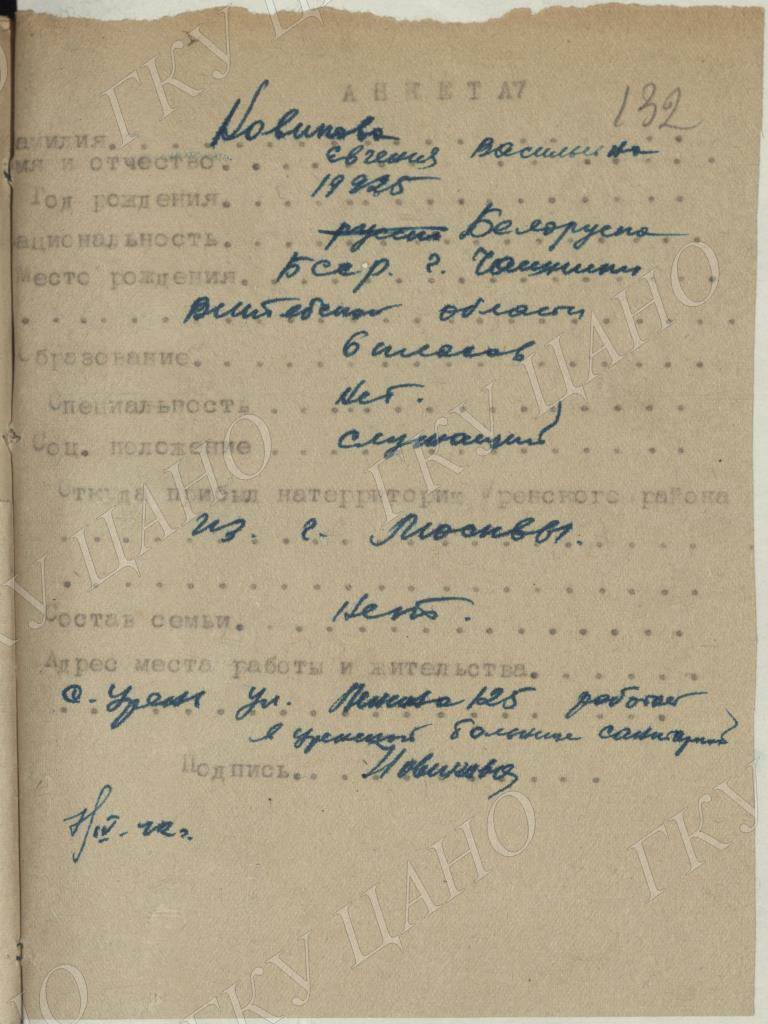 АНКЕТА
132
амилия. Новикова
мя и отчество. Евгения Васильевна
Год рождения. 1925
ациональность. русск Белоруска
Место рождения. БССР. г. Чашники
Витебской области
Образование. 6 класов
Специальность нет.
Соц. положение служащий
Откуда прибыл натерритории Уренского района
из. г. Москвы.
Состав семьи. Нет.
Адрес места работы и жительства.
с. Урень ул. Ленина 125 работает
в уренской больнице санитаркой
Подпись. Новикова
IV-42г.
ГКУ ЦАНО
ГКУ ЦАНО
ГКУ ЦАНО
ГКУ ЦАНО
ГКУ ЦАНО
ГКУ